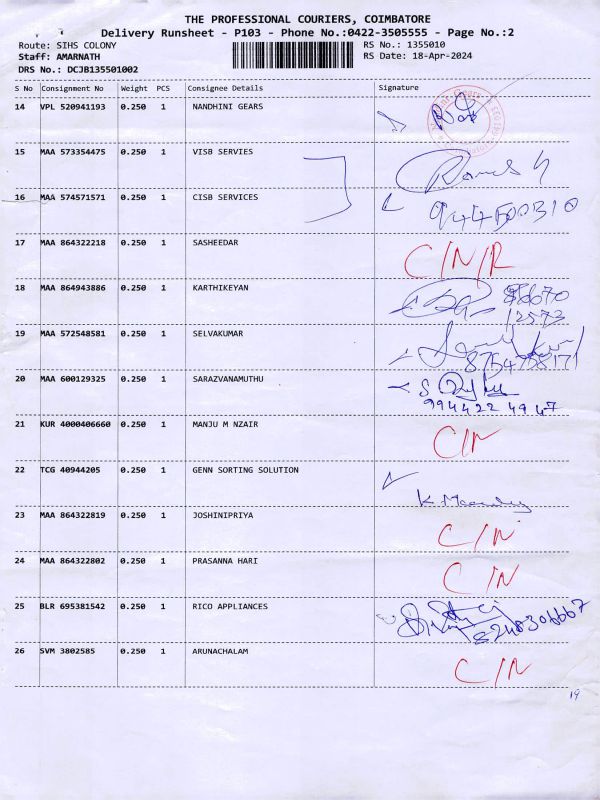 THE PROFESSIONAL COURIERS, COIMBATORE
Delivery Runsheet - P103 - Phone No.:0422-3505555 - Page No.:2
Route: SIHS COLONY
RS No.: 1355010
Staff: AMARNATH
RS Date: 18-Apr-2024
DRS No.: DCJB135501002
S No Consignment No Weight PCS Consignee Details Signature
14 VPL 520941193 0.250 1 NANDHINI GEARS
15 MAA 573354475 0.250 1 VISB SERVIES
16 MAA 574571571 0.250 1 CISB SERVICES
9445500310
17 MAA 864322218 0.250 1 SASHEEDAR C/N/R
18 MAA 864943886 0.250 1 KARTHIKEYAN
12573
19 MAA 572548581 0.250 1 SELVAKUMAR
20 MAA 600129325 0.250 1 SARAZVANAMUTHU
994422 4947
21 KUR 4000406660 0.250 1 MANJU M NZAIR C/N
22 TCG 40944205 0.250 1 GENN SORTING SOLUTION
23 MAA 864322819 0.250 1 JOSHINIPRIYA C/N
24 MAA 864322802 0.250 1 PRASANNA HARI C/N
25 BLR 695381542 0.250 1 RICO APPLIANCES
8248306667
26 SVM 3802585 0.250 1 ARUNACHALAM C/N
19